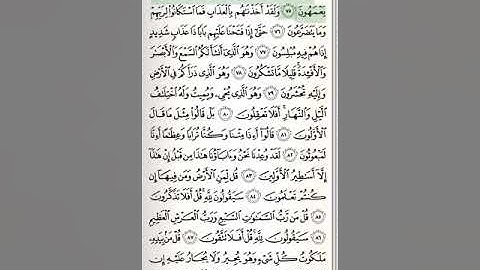 يَعْمَهُونَ ٧٥ وَلَقَدْ أَخَذْنَٰهُم بِٱلْعَذَابِ فَمَا ٱسْتَكَانُوا۟ لِرَبِّهِمْ
وَمَا يَتَضَرَّعُونَ ٧٦ حَتَّىٰٓ إِذَا فَتَحْنَا عَلَيْهِم بَابًا ذَا عَذَابٍ شَدِيدٍ
إِذَا هُمْ فِيهِ مُبْلِسُونَ ٧٧ وَهُوَ ٱلَّذِىٓ أَنشَأَ لَكُمُ ٱلسَّمْعَ وَٱلْأَبْصَٰرَ
وَٱلْأَفْـِٔدَةَ ۚ قَلِيلًا مَّا تَشْكُرُونَ ٧٨ وَهُوَ ٱلَّذِى ذَرَأَكُمْ فِى ٱلْأَرْضِ
وَإِلَيْهِ تُحْشَرُونَ ٧٩ وَهُوَ ٱلَّذِى يُحْىِۦ وَيُمِيتُ وَلَهُ ٱخْتِلَٰفُ
ٱلَّيْلِ وَٱلنَّهَارِ ۚ أَفَلَا تَعْقِلُونَ ٨٠ بَلْ قَالُوا۟ مِثْلَ مَا قَالَ
ٱلْأَوَّلُونَ ٨١ قَالُوٓا۟ أَءِذَا مِتْنَا وَكُنَّا تُرَابًا وَعِظَٰمًا أَءِنَّا
لَمَبْعُوثُونَ ٨٢ لَقَدْ وُعِدْنَا نَحْنُ وَءَابَآؤُنَا هَٰذَا مِن قَبْلُ إِنْ هَٰذَآ
إِلَّآ أَسَٰطِيرُ ٱلْأَوَّلِينَ ٨٣ قُل لِّمَنِ ٱلْأَرْضُ وَمَن فِيهَآ إِن
كُنتُمْ تَعْلَمُونَ ٨٤ سَيَقُولُونَ لِلَّهِ ۚ قُلْ أَفَلَا تَذَكَّرُونَ
٨٥ قُلْ مَن رَّبُّ ٱلسَّمَٰوَٰتِ ٱلسَّبْعِ وَرَبُّ ٱلْعَرْشِ ٱلْعَظِيمِ
٨٦ سَيَقُولُونَ لِلَّهِ ۚ قُلْ أَفَلَا تَتَّقُونَ ٨٧ قُلْ مَنۢ بِيَدِهِۦ
مَلَكُوتُ كُلِّ شَىْءٍ وَهُوَ يُجِيرُ وَلَا يُجَارُ عَلَيْهِ إِن